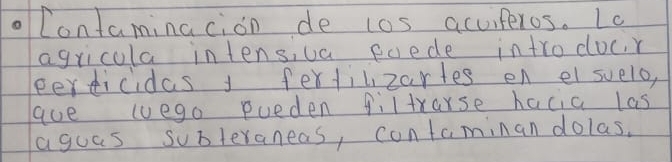 • Contaminación de los acuiferos. La
agricola intensiva puede introducir
perticidas y fertilizartes en el suelo,
que luego pueden filtrarse hacia las
aguas subteraneas, contaminandolas.